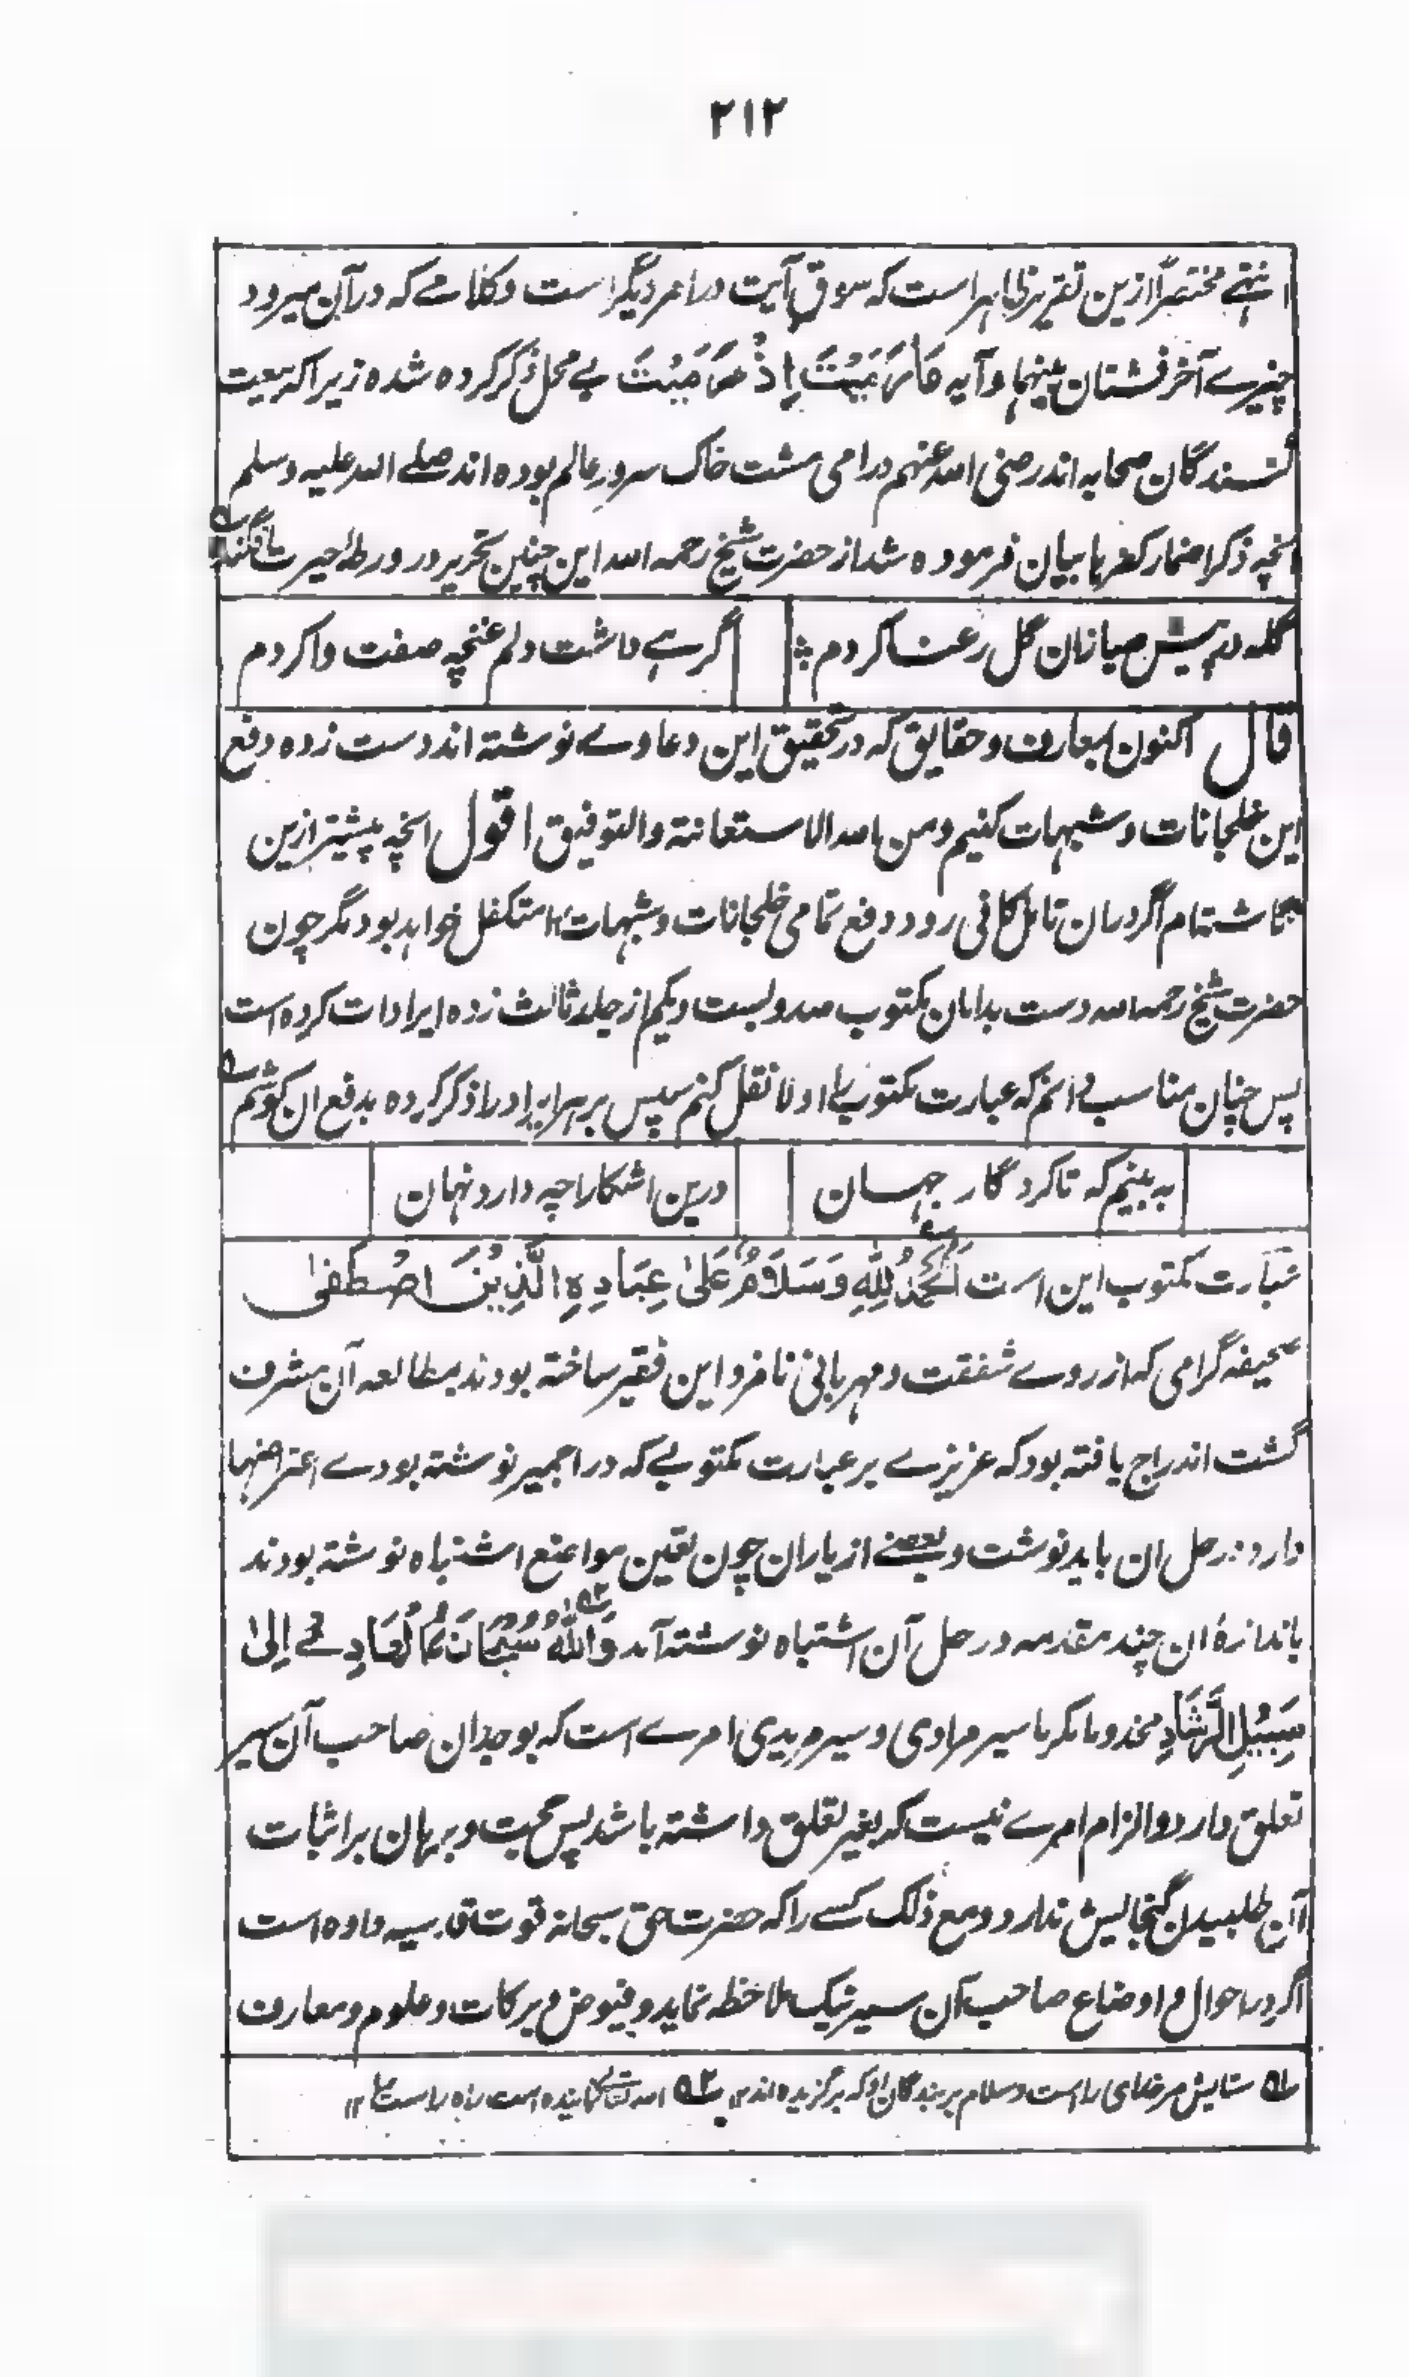 ۲۱۲
انتهے مختصراً ازین تقریر ظاهر است که سوق آیت در امر دیگر است و کلامے که در آن میرود
چیزے آخر فشتان بینهما و آیه مَا رَمَيْتَ اِذْ رَمَيْتَ بے محل ذکر کرده شده زیرا که بیعت
کنندگان صحابه اند رضی الله عنهم و رامی مشت خاک سرور عالم بوده اند صلے الله علیه وسلم
انچه ذکر اضمار کفرها بیان فرموده شد از حضرت شیخ رحمه الله این چنین تحریر در ورطهٔ حیرت افگند
گله پیش صبا زان گل رعنا کردم
گرهے داشت دلم غنچه صفت وا کردم
قال اکنون بمعارف و حقایق که در تحقیق این دعاوے نوشته اند دست زده دفع
این خلجانات و شبهات کنیم و من الله الاستعانة والتوفیق اقول انچه پیشتر ازین
نگاشته ام اگر در ان تامل کافی رود دفع تمامی خلجانات و شبهات را متکفل خواهد بود مگر چون
حضرت شیخ رحمه الله دست بدامان مکتوب صد و بست و یکم از جلد ثالث زده ایرادات کرده است
پس چنان مناسب دانم که عبارت مکتوب را اولا نقل کنم سپس بر هر ایراد را ذکر کرده بدفع ان کوشم
به بینیم که تا کردگار جهان
درین اشکارا چه دارد نهان
عبارت مکتوب این است اَلْحَمْدُ لِلّٰهِ وَسَلَامٌ عَلیٰ عِبَادِهِ الَّذِیْنَ اصْطَفیٰ
صحیفه گرامی که از روے شفقت و مهربانی نامزد این فقیر ساخته بودند بمطالعه آن مشرف
گشت اندراج یافته بود که عزیزے بر عبارت مکتوبے که در اجمیر نوشته بودے اعتراضها
دارد در حل ان باید نوشت و بعضے از یاران چون تعین مواضع اشتباه نوشته بودند
باندازهٔ ان چند مقدمه در حل آن اشتباه نوشته آمد وَاللّٰهُ سُبْحَانَهُ الْهَادِے اِلیٰ
سَبِیْلِ الرَّشَادِ مخدوما مکرما سیر مرادی و سیر مریدی امرے است که بوجدان صاحب آن سیر
تعلق دارد و الزام امرے نیست که بغیر تعلق داشته باشد پس حجت و برهان بر اثبات
آن طلبیدن گنجایش ندارد و مع ذلک کسے را که حضرت حق سبحانه قوت قدسیه داده است
اگر در احوال و اوضاع صاحب آن سیر نیک ملاحظه نماید و فیوض و برکات و علوم و معارف
۵۱ ستایش مر خدای راست و سلام بر بندگان او که برگزیده اند ۱۲ ۵۲ الله تعالے نماینده است راه راست ۱۲